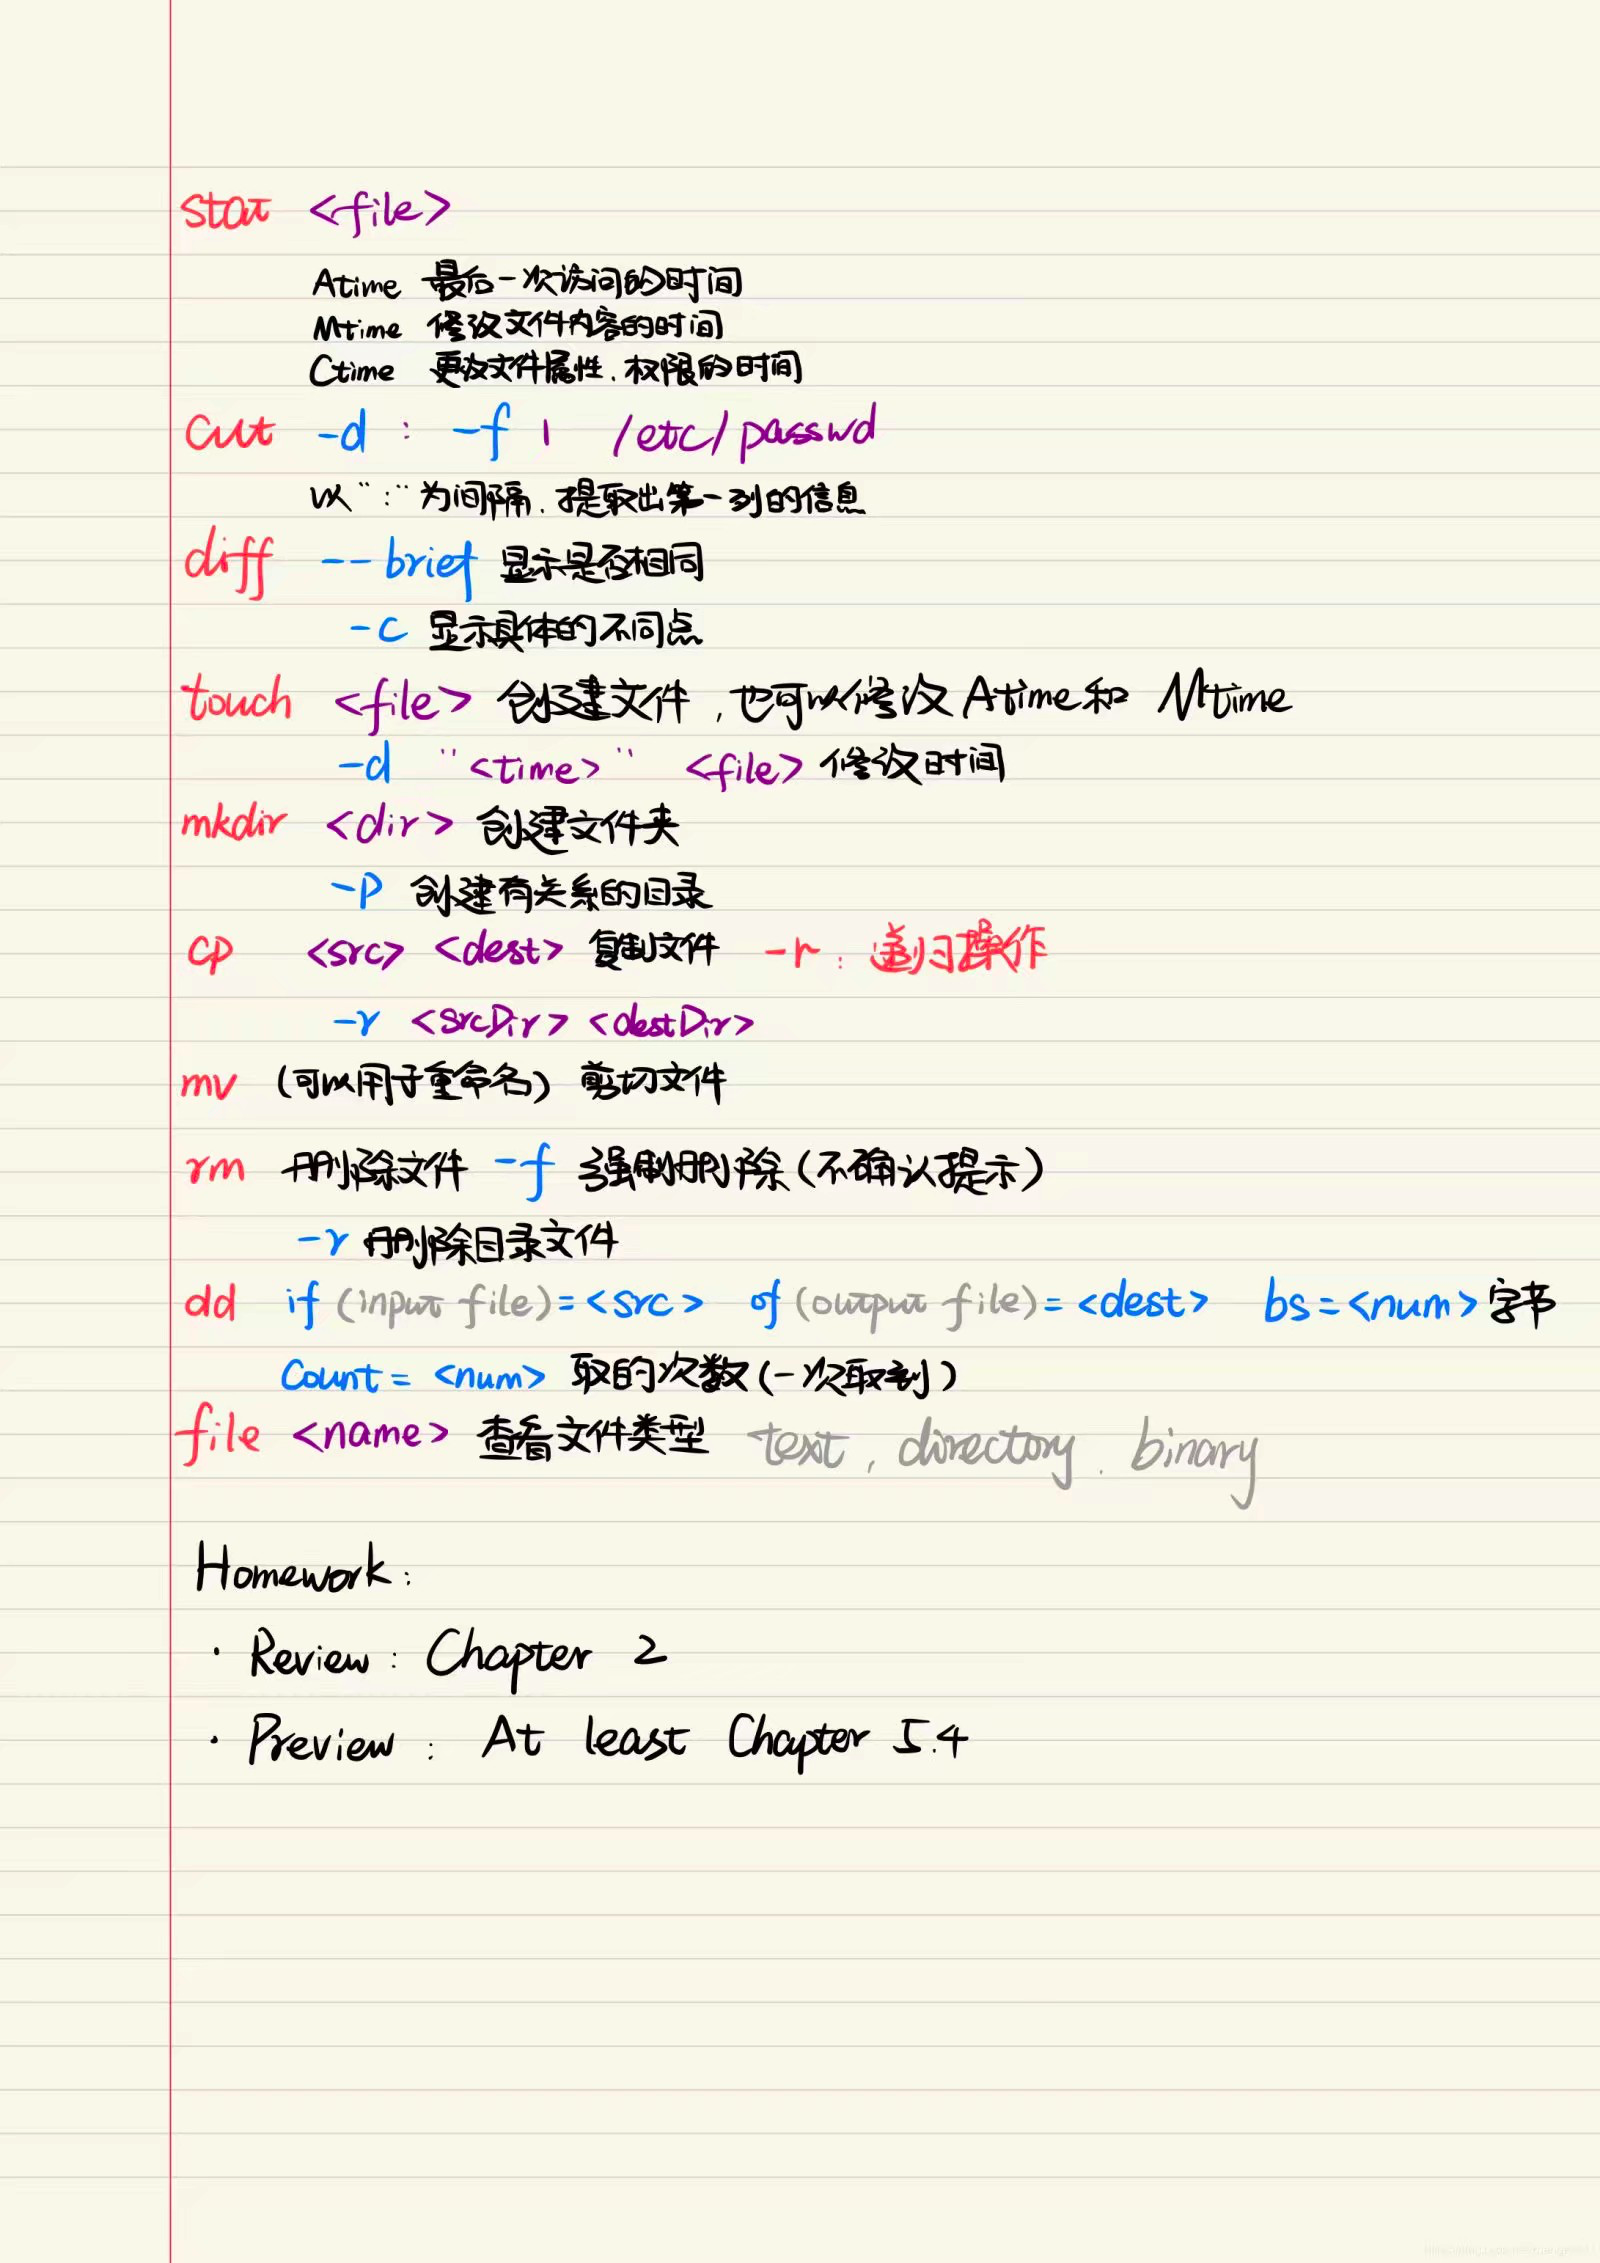 stat <file>
Atime 最后一次访问的时间
Mtime 修改文件内容的时间
Ctime 更改文件属性、权限的时间
cut -d : -f 1 /etc/passwd
以":"为间隔、提取出第一列的信息
diff --brief 显示是否相同
-c 显示具体的不同点
touch <file> 创建文件，也可以修改 Atime和 Mtime
-d "<time>" <file> 修改时间
mkdir <dir> 创建文件夹
-p 创建有关系的目录
cp <src> <dest> 复制文件 -r：递归操作
-r <srcDir> <destDir>
mv (可以用于重命名) 剪切文件
rm 删除文件 -f 强制删除(不确认提示)
-r 删除目录文件
dd if (input file)=<src> of (output file)=<dest> bs=<num>字节
Count= <num> 取的次数(一次取到)
file <name> 查看文件类型 text, directory, binary
Homework:
· Review: Chapter 2
· Preview: At least Chapter 5.4